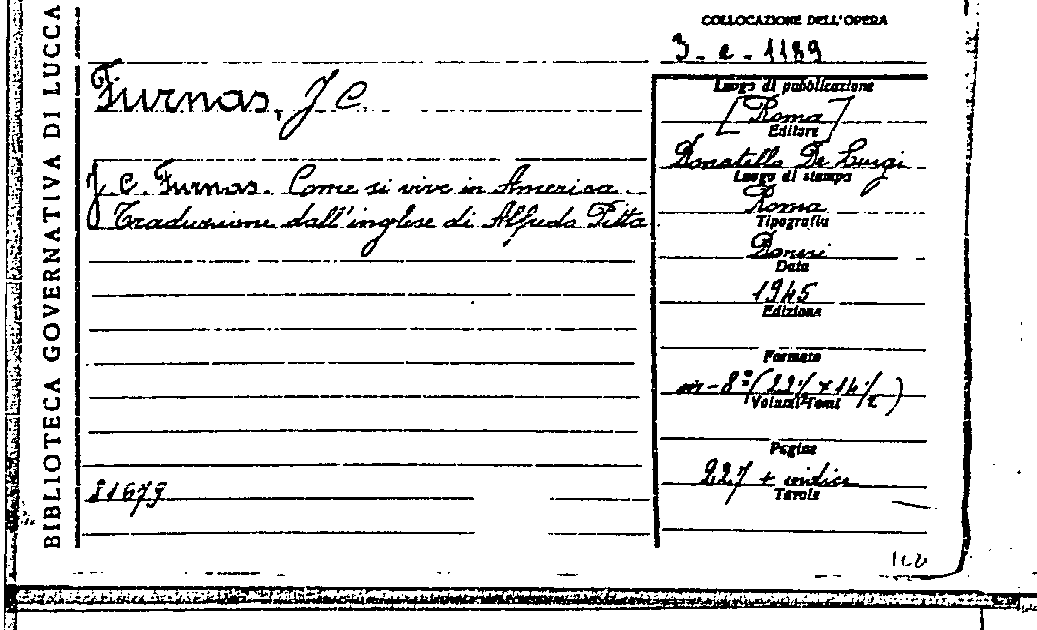 BIBLIOTECA GOVERNATIVA DI LUCCA
COLLOCAZIONE DELL'OPERA
3 - e - 1189
Furnas, J C.
J C. Furnas. Come si vive in America.
Traduzione dall'inglese di Alfredo Pitta
21679
Luogo di pubblicazione
[Roma]
Editore
Donatello De Luigi
Luogo di stampa
Roma
Tipografia
Data
1945
Edizione
Formato
in-8°(22½ x 14½)
Volumi Tomi
Pagine
227 + indice
Tavole